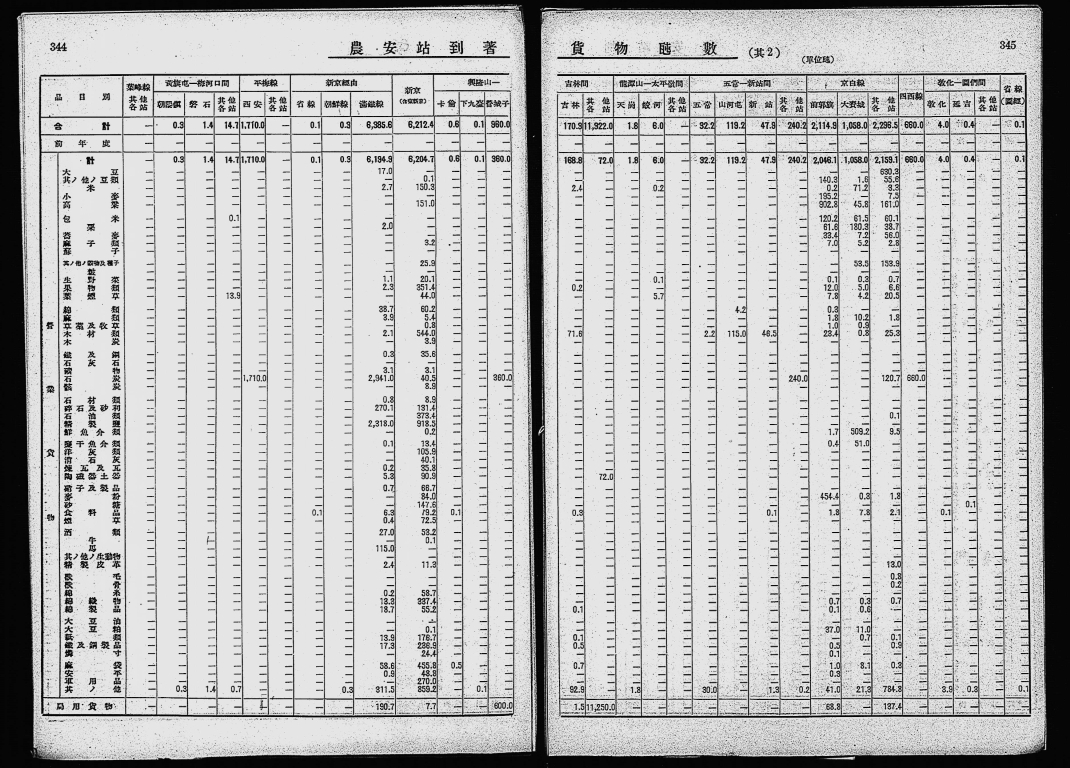 344
農安站到著
品目別 葉峰線 黃旗屯—梅河口間 平梅線 新京經由 新京 興隆山—
其他各站 朝陽鎭 磐石 其他各站 西安 其他各站 省線 朝鮮線 滿鐵線 卡倫 下九臺 營城子
合計 — 0.3 1.4 14.7 1,710.0 — 0.1 0.3 6,385.6 6,212.4 0.6 0.1 960.0
前年度 — — — — — — — — — — — — —
營業貨物
計 — 0.3 1.4 14.7 1,710.0 — 0.1 0.3 6,194.9 6,204.7 0.6 0.1 360.0
大豆 17.0
其ノ他ノ豆類 0.1
米 2.7 150.3
小麥
高粱 151.0
包米 0.1
粟 2.0
麻子類 3.2
蘇子
其ノ他ノ穀物及種子 25.9
生野菜 1.1 20.1
果物類 2.3 351.4
葉煙草 13.9 44.0
綿類 38.7 60.2
麻類 3.9 5.4
草藁及牧草 0.8
木材類 2.1 544.0
木炭 3.9
鐵及鋼 0.3 35.6
石灰石
礦物 3.1 3.1
石炭 1,710.0 2,941.0 40.5 360.0
骸炭 8.9
石材類 0.8 8.9
碎石及砂利 270.1 131.4
石油類 373.4
精製鹽 2,318.0 918.5
鮮魚介類 0.2
鹽干魚介類 0.1 13.4
洋灰類 105.9
消石灰 40.1
煉瓦及瓦 0.2 35.8
陶磁器土器 5.3 90.9
硝子及製品 0.7 66.7
麥粉 84.0
砂糖 147.6
食料品 0.1 6.3 79.2 0.1
煙草 0.4 72.5
酒類 27.0 53.2
牛 0.1
馬 115.0
其ノ他ノ生動物
精製皮革 2.4 11.3
獸毛
獸骨
綿糸 0.2 58.7
綿織物 13.3 337.4
綿製品 18.7 55.2
大豆油
大豆粕 0.1
紙類 13.9 176.7
鐵及鋼製品 17.3 236.9
燐寸 24.4
麻袋 58.6 455.8 0.5
安平 0.9 48.8
軍用品 270.0
其ノ他 0.3 1.4 0.7 0.3 311.5 859.2 0.1
局用貨物 190.7 7.7 600.0
貨物噸數(其2)
(單位瓲)
345
吉林間 龍潭山—太平嶺間 五常—新站間 京白線 四西線 敦化—圖們間 省線(圖經)
吉林 其他各站 天崗 蛟河 其他各站 五常 山河屯 新站 其他各站 前郭旗 大賚城 其他各站 敦化 延吉 其他各站
170.3 11,322.0 1.8 6.0 — 32.2 119.2 47.9 240.2 2,114.9 1,058.0 2,296.5 660.0 4.0 0.4 — 0.1
168.8 72.0 1.8 6.0 — 32.2 119.2 47.9 240.2 2,046.1 1,058.0 2,159.1 660.0 4.0 0.4 — 0.1
630.3
140.3 1.6 55.6
2.4 0.2 0.2 71.2 3.3
195.2 7.5
902.8 45.8 161.0
120.2 61.5 60.1
61.6 180.3 38.7
33.4 7.2 56.0
7.0 5.2 2.8
53.5 153.9
0.1 0.1 0.3 0.7
0.2 12.0 5.0 6.6
5.7 7.8 4.2 20.5
4.2 0.3
1.8 10.2 1.8
1.0 0.9
71.6 2.2 115.0 46.5 23.4 0.8 25.3
240.0 120.7 660.0
0.1
1.7 509.2 9.5
0.4 51.0
72.0
454.4 0.3 1.8
0.1
0.3 0.1 1.8 7.8 2.1 0.1
13.0
0.8
0.2
0.7 0.3 0.7
0.1 0.1 0.6
37.0 11.0
0.1 0.7 0.1
0.5 0.5 0.9
0.1
0.7 1.0 8.1 0.3
0.3
92.9 1.8 30.0 1.3 0.2 41.0 21.3 784.8 3.9 0.3 0.1
1.5 11,250.0 68.8 137.4